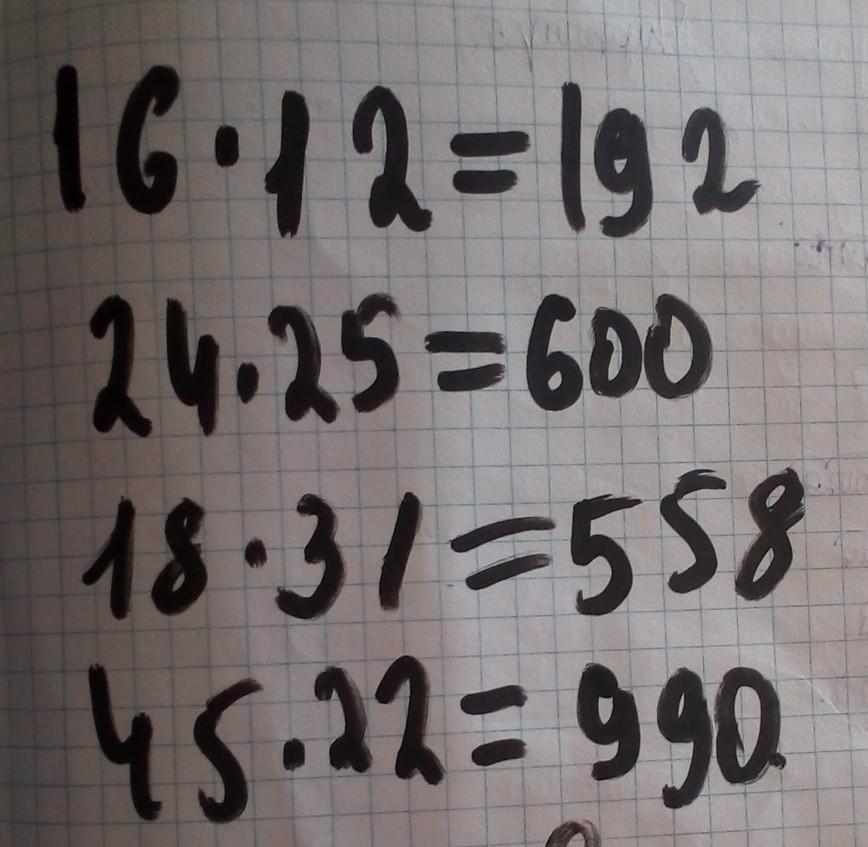 16·12=192
24·25=600
18·31=558
45·22=990